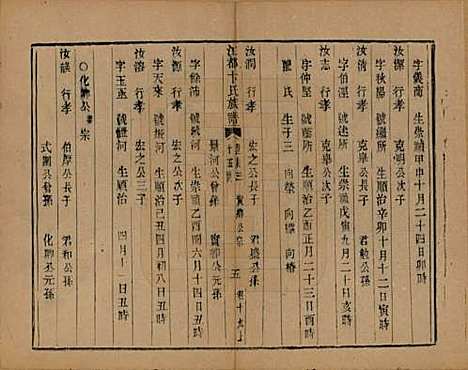 字義南　生崇禎甲申十月二十四日卯時
汝深　行孝　克明公次子
字秋陽　號繼所　生順治辛卯十月十二日寅時
汝清　行孝　克皋公長子　君勉公孫
字伯涇　號述所　生崇禎戊寅九月二十日亥時
汝志　行孝　克皋公次子
字仲堅　號鹽所　生順治乙酉正月二十三日酉時
瞿氏　生子三　向榮　向椿
汝潤　行孝　宏之公長子　君盛公孫
江都卞氏族譜　五　卷十九上
字餘沛　號溮河　生崇禎乙酉閏六月十四日丑時
汝源　行孝　宏之公次子　景河公曾孫　賓湖公元孫
字天來　號振河　生順治己丑四月初八日丑時
汝溶　行孝　宏之公三子
字玉丞　號鹽河　生順治　四月十一日丑時
〇化鯉公宗
汝謨　行孝　伯厚公長子　君和公孫
式南公曾孫　化鯉公元孫